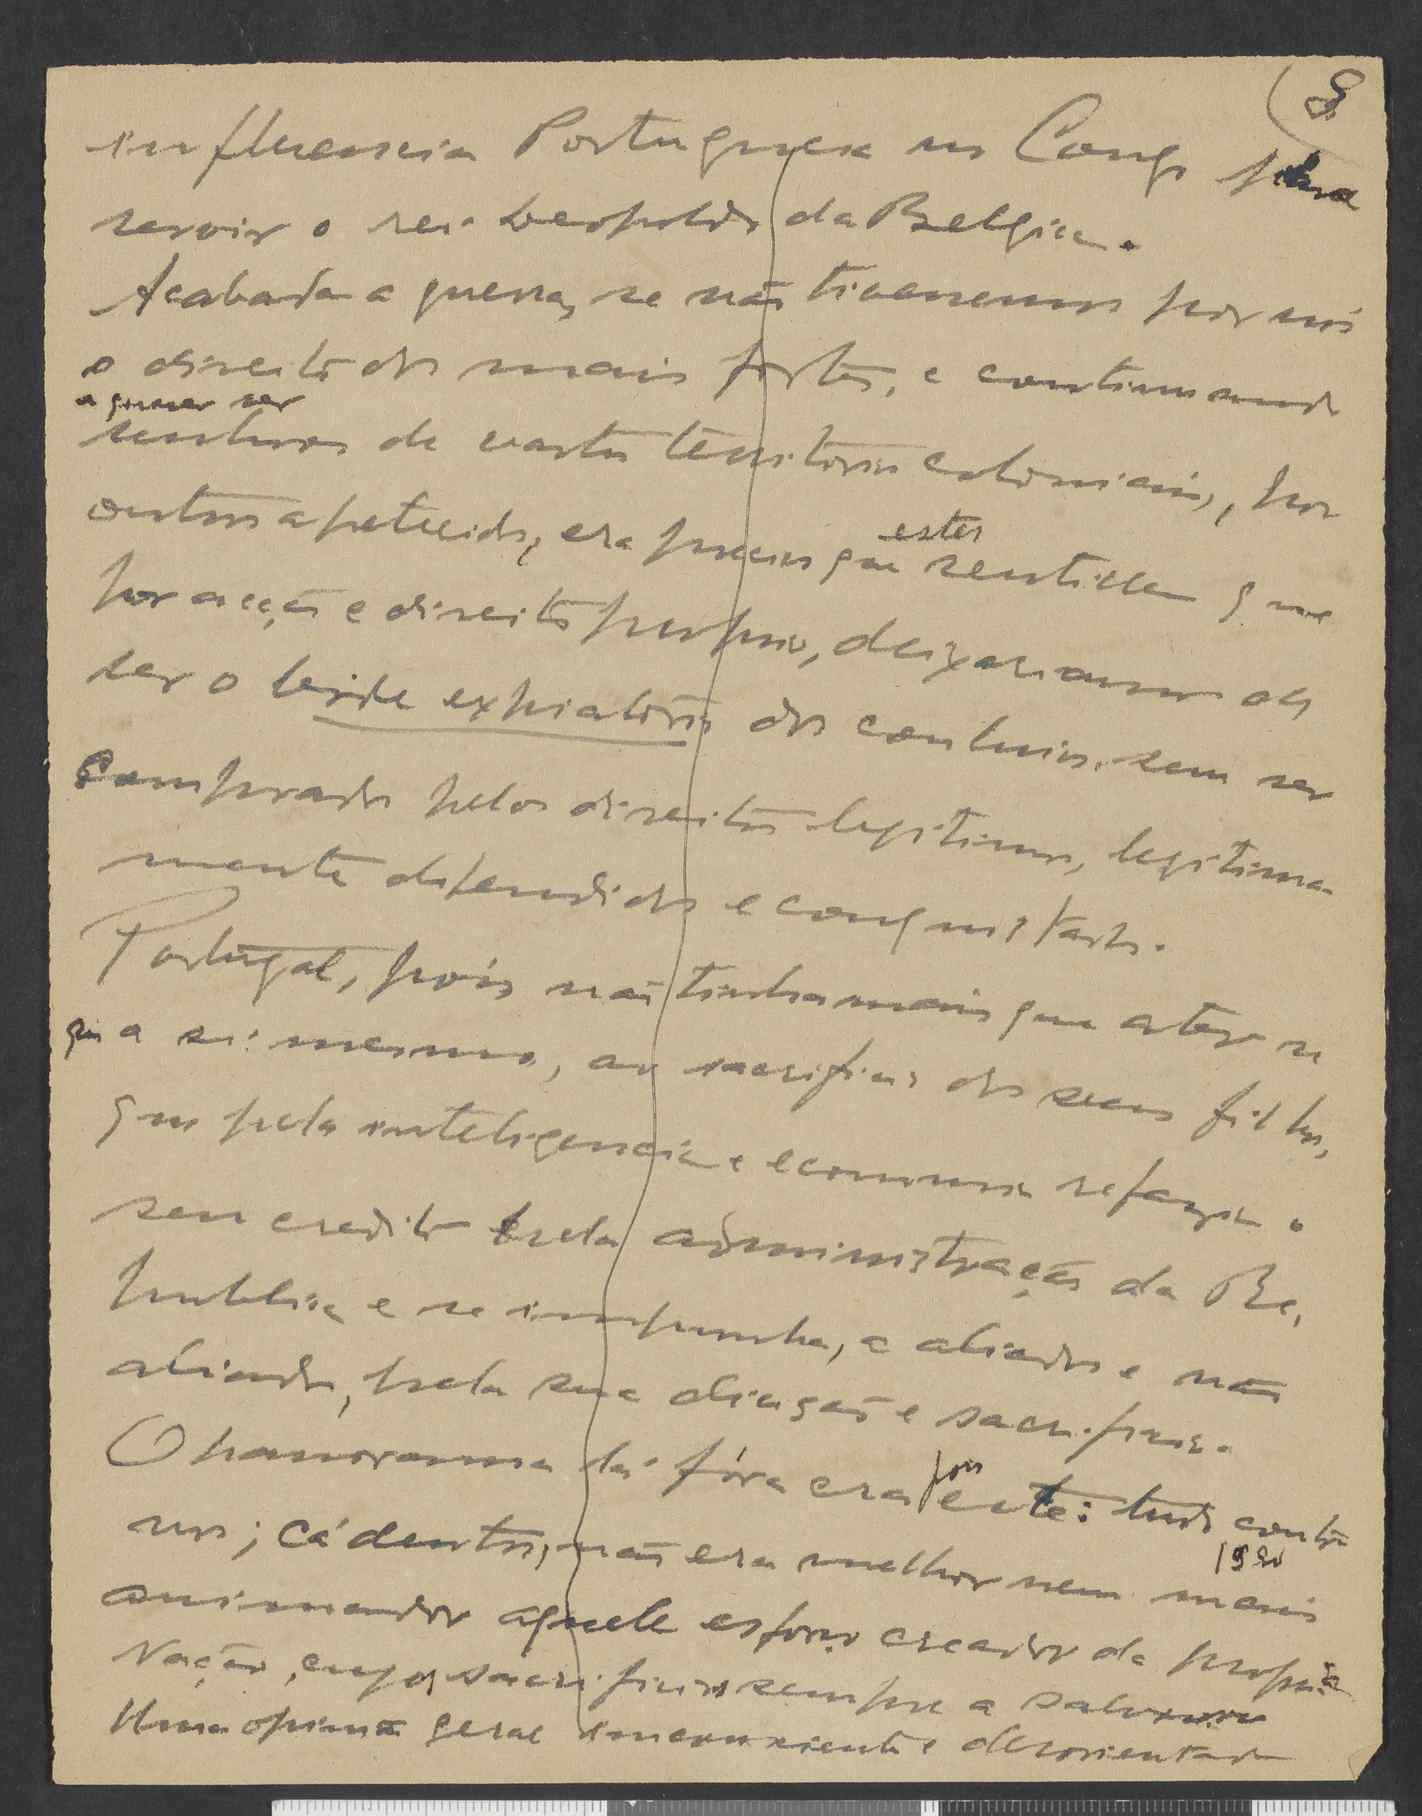 8
influencia Portugueza no Congo para
servir o rei Leopoldo da Belgica.
Acabada a guerra, se não tivessemos por nós
o direito dos mais fortes, e continuando
a querer ser
senhores de vastos territorios coloniais, por
outros apetecidos, era preciso que estes sentissem que
por acção e direito proprio, deixariamos de
ser o bode expiatorio dos conluios, sem ser
comprados pelos direitos legitimos, legitima-
mente defendidos e conquistados.
Portugal, pois não tinha mais que ater-se
que a si mesmo, ao sacrificio dos seus filhos,
que pela inteligencia e economia refazia o
seu credito pela administração da Re-
publica e se impunha, a aliados e não
aliados, pela sua direcção e sacrificio.
O panorama lá fóra era pois este: tudo contra
nos; cá dentro, não era melhor nem mais
animador aquele esforço creador da propria
Nação, cujos sacrificios sempre a salvaram
Uma opinião geral inconsciente e desorientada